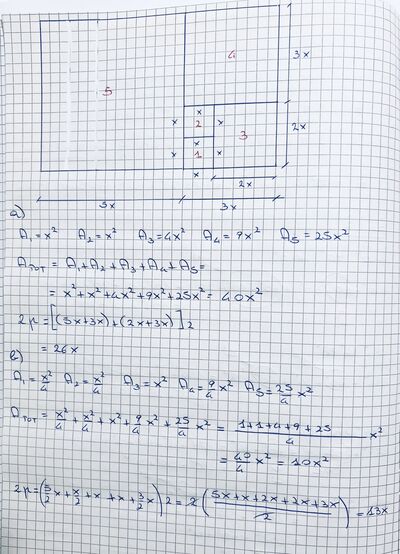 4
3x
5
x
x 2 x
3
2x
x
x 1 x
x
2x
5x 3x
a)
A₁ = x² A₂ = x² A₃ = 4x² A₄ = 9x² A₅ = 25x²
Aᴛᴏᴛ = A₁ + A₂ + A₃ + A₄ + A₅ =
= x² + x² + 4x² + 9x² + 25x² = 40x²
2p = [(5x+3x) + (2x+3x)] 2
= 26x
b)
A₁ = x²/4 A₂ = x²/4 A₃ = x² A₄ = 9/4 x² A₅ = 25/4 x²
Aᴛᴏᴛ = x²/4 + x²/4 + x² + 9/4 x² + 25/4 x² = (1+1+4+9+25)/4 x²
= 40/4 x² = 10x²
2p = (5/2 x + x/2 + x + x + 3/2 x) 2 = 2 ((5x+x+2x+2x+3x)/2) = 13x